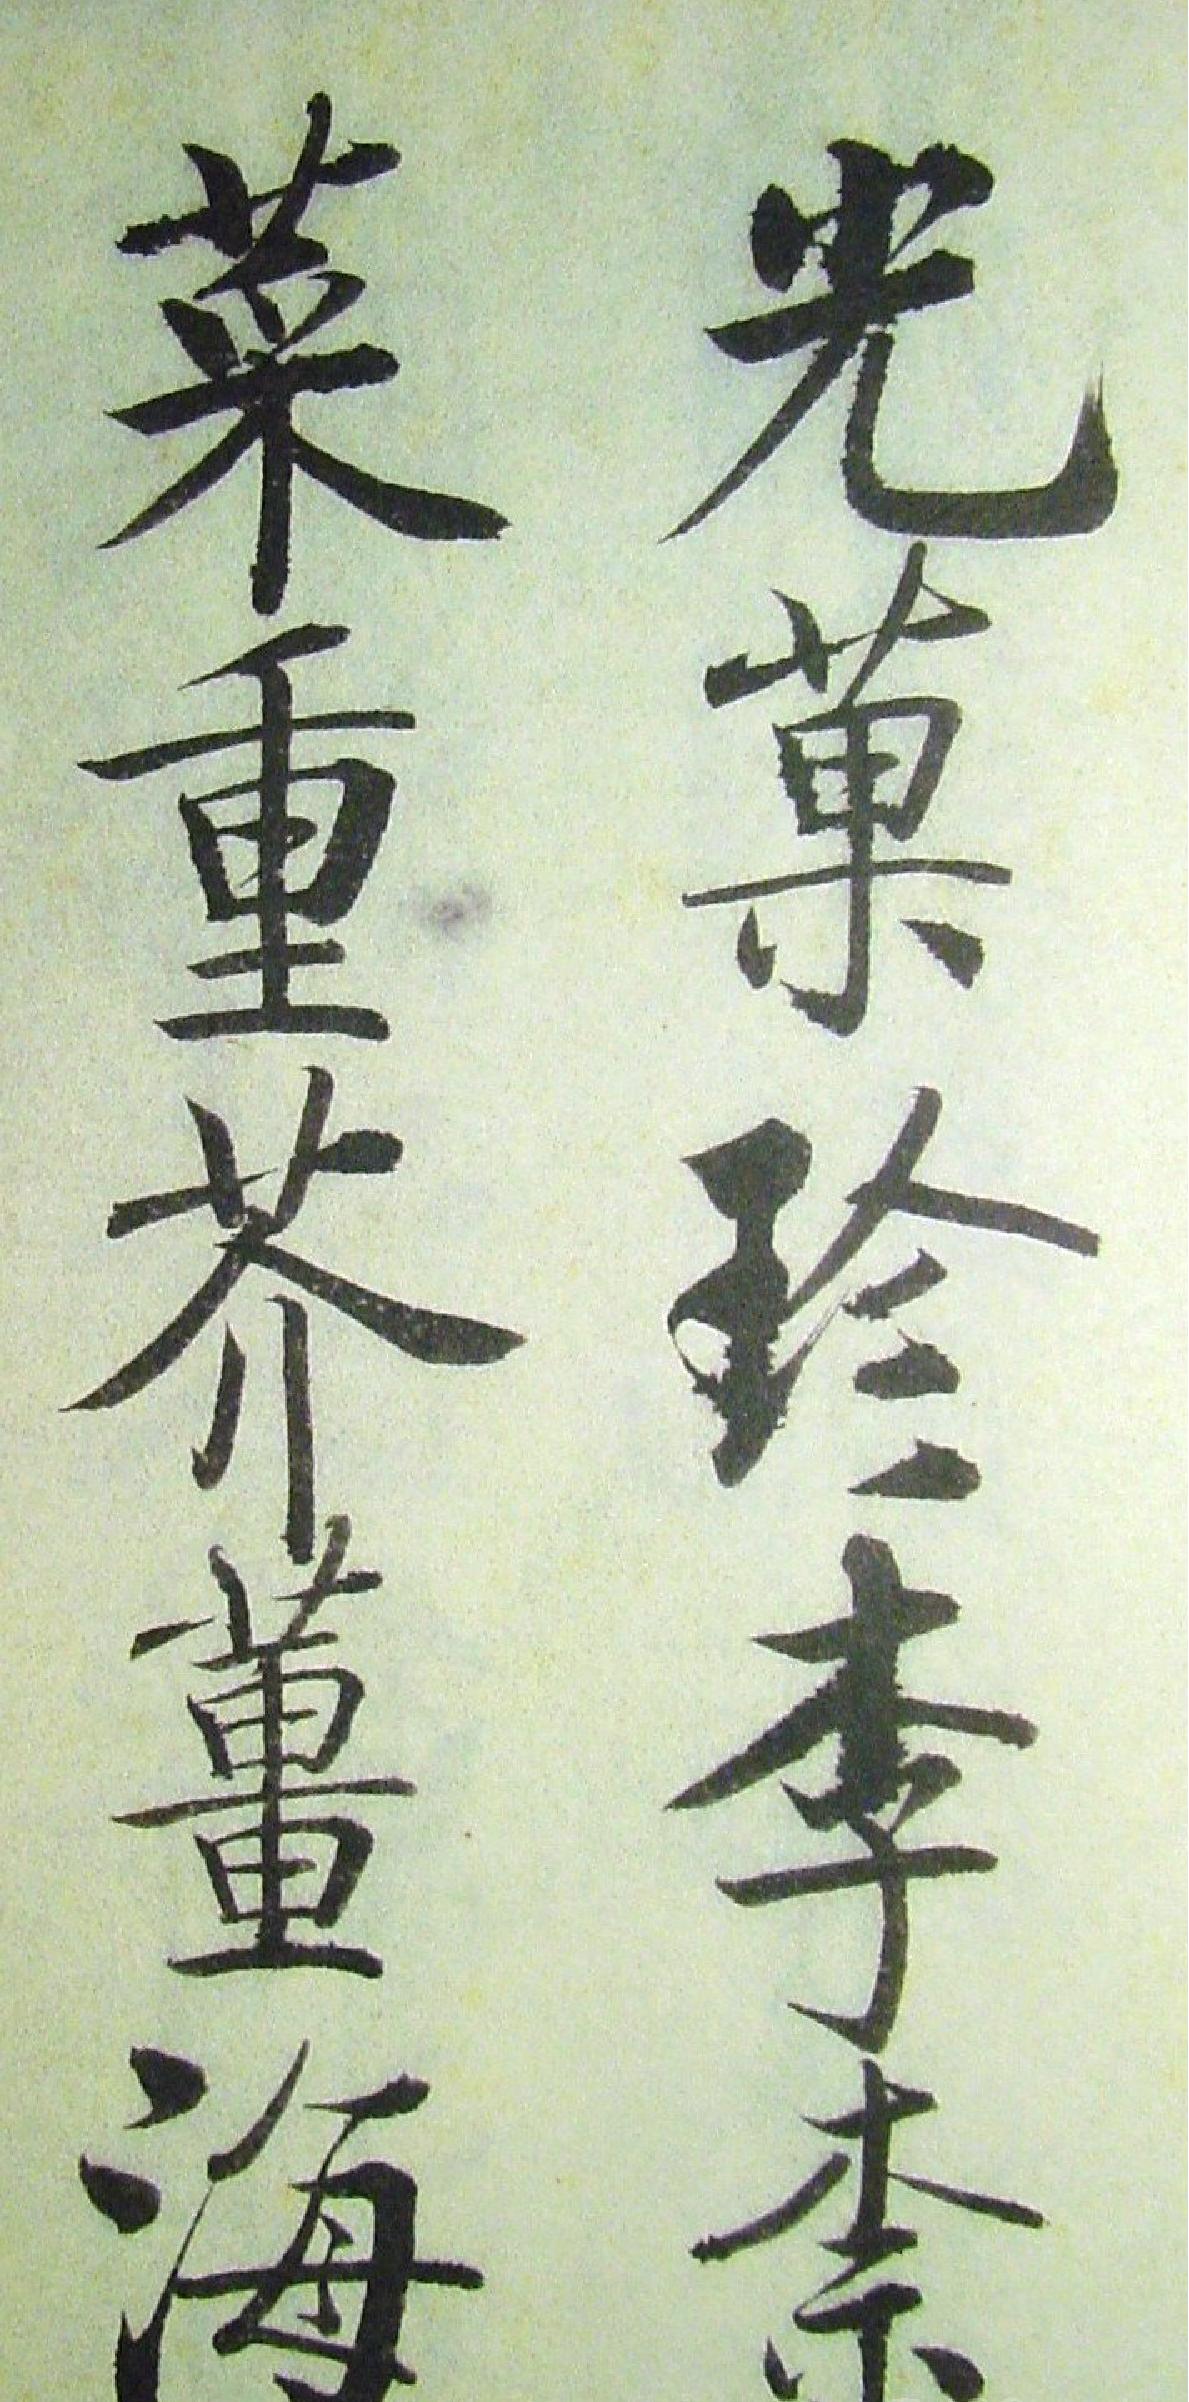 光菓珍李柰
菜重芥薑海